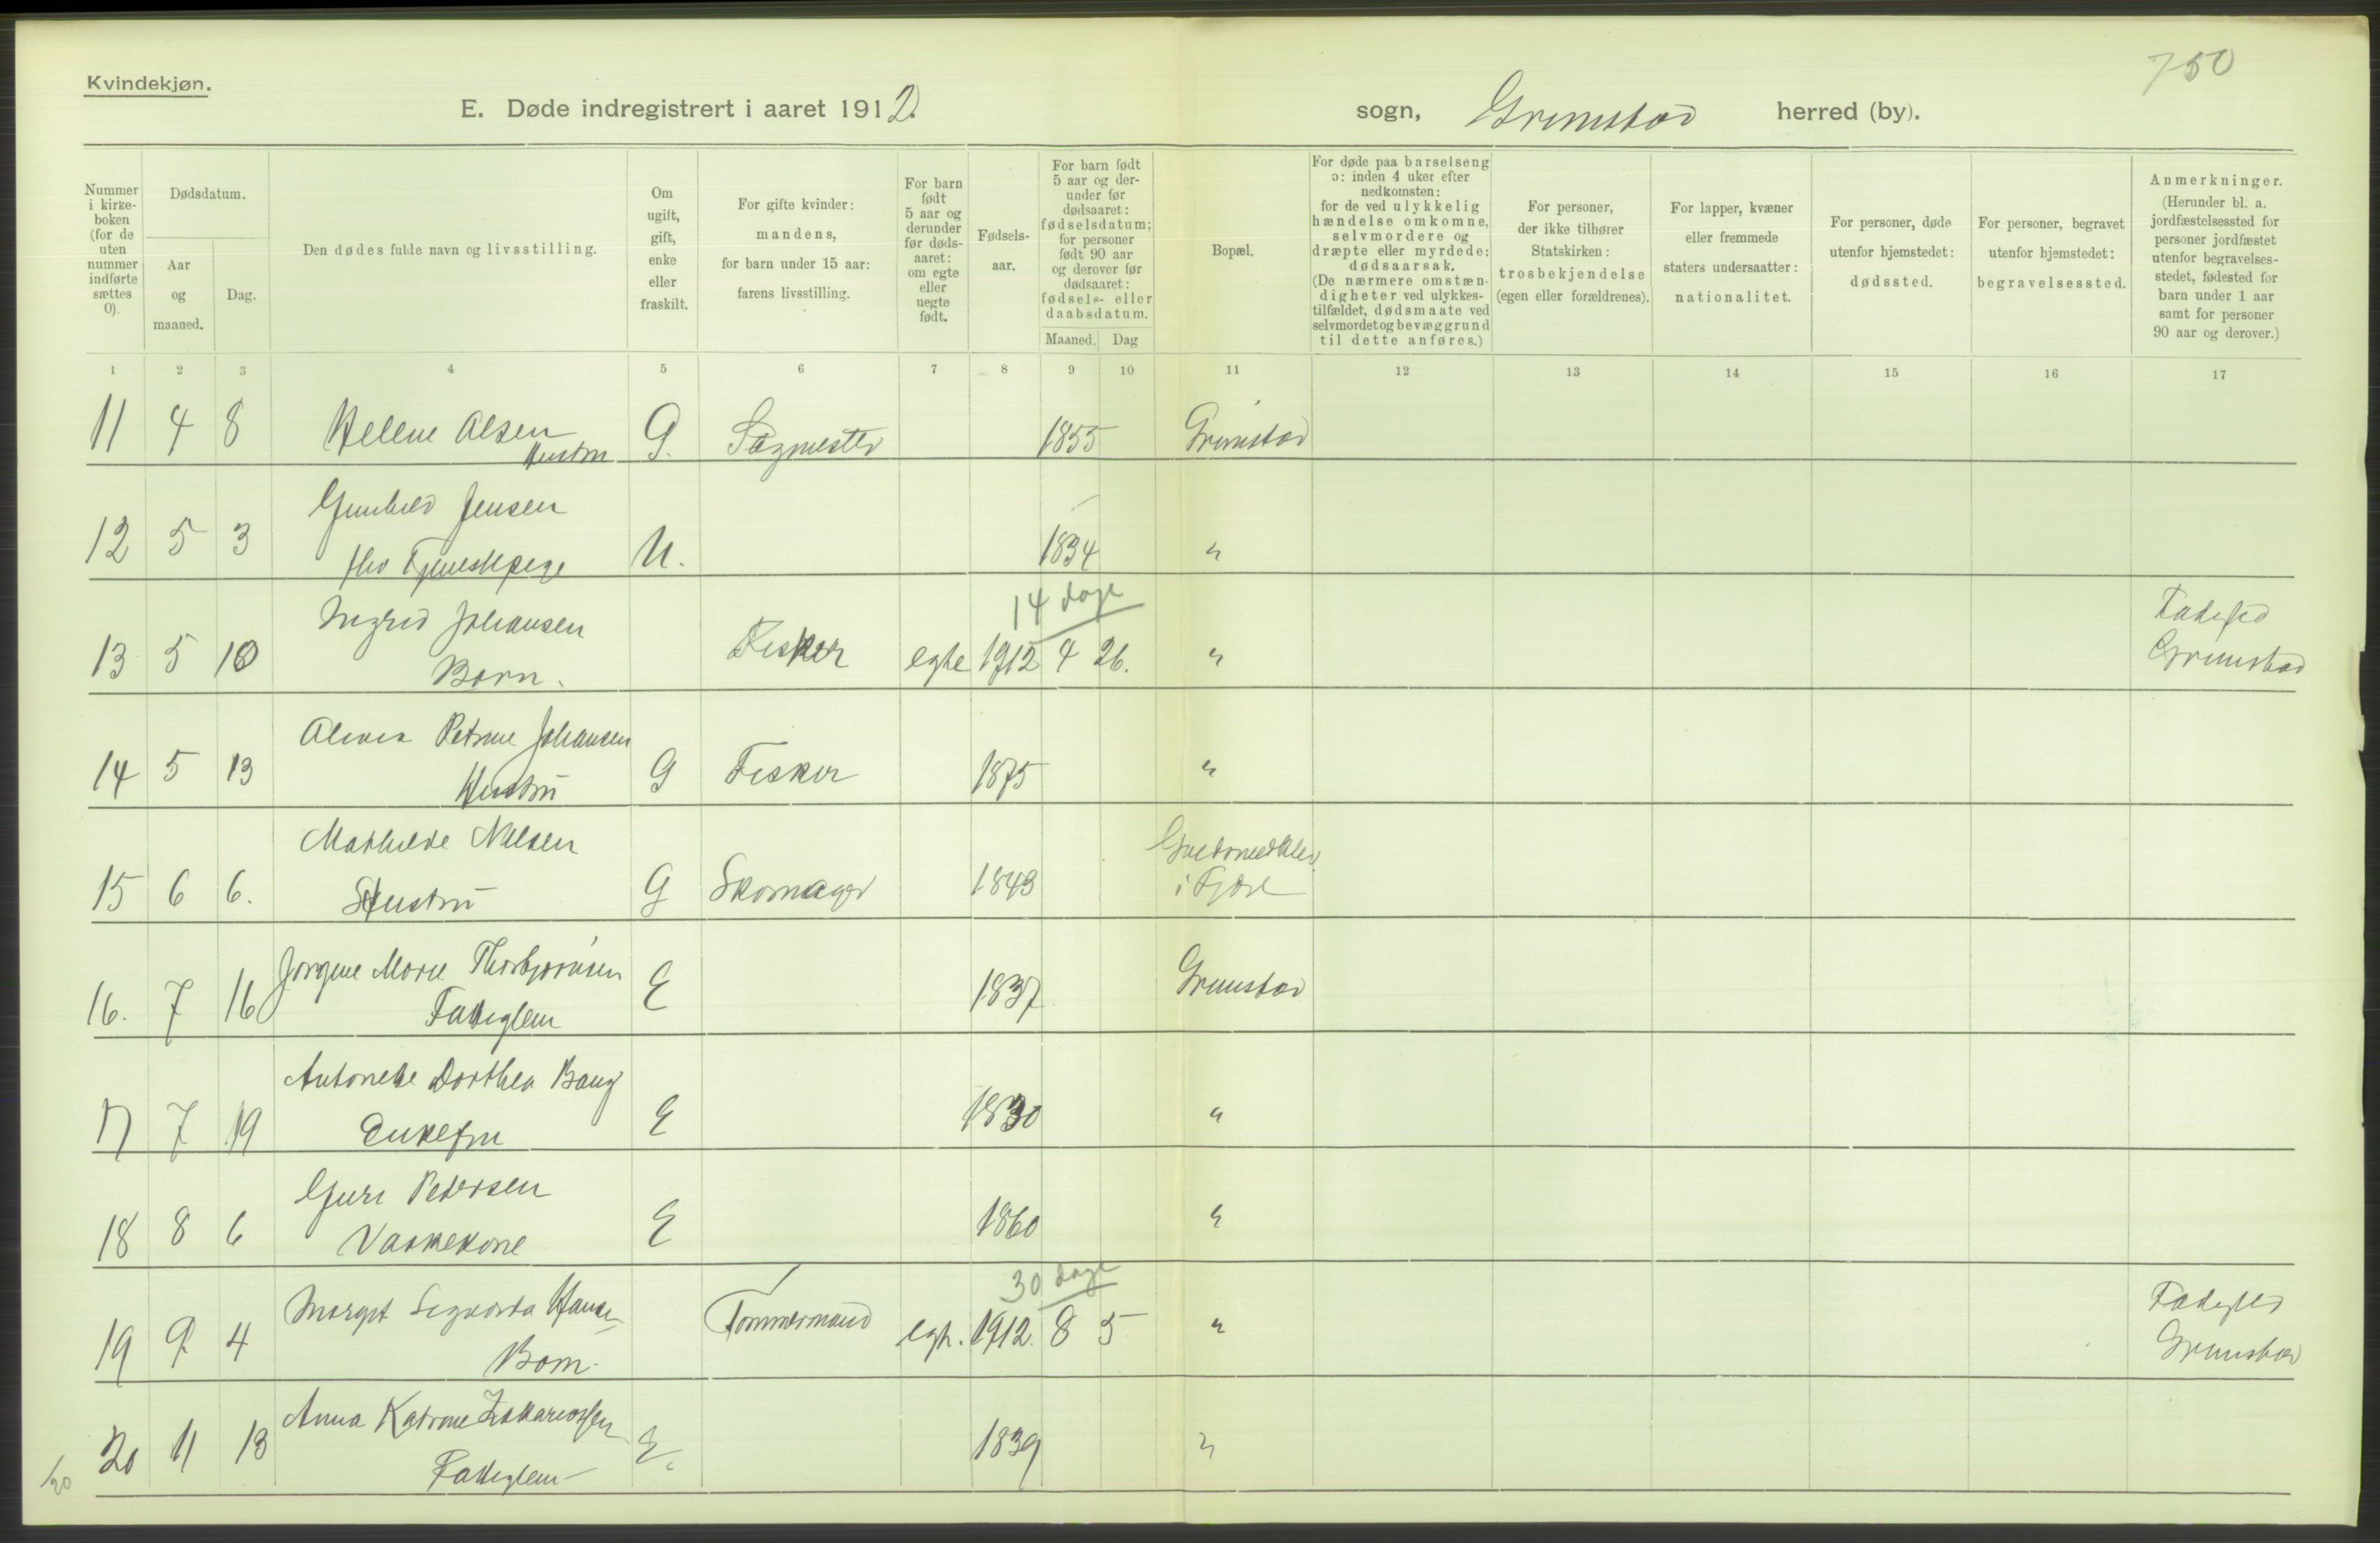 750
Kvindekjøn.
E. Døde indregistrert i aaret 1912. sogn, Grimstad herred (by).
Nummer i kirke-boken (for de uten nummer indførte sættes 0).
Dødsdatum.
Aar og maaned.
Dag.
Den dødes fulde navn og livsstilling.
Om ugift, gift, enke eller fraskilt.
For gifte kvinder: mandens, for barn under 15 aar: farens livsstilling.
For barn født 5 aar og derunder før døds-aaret: om egte eller uegte født.
Fødsels-aar.
For barn født 5 aar og der-under før dødsaaret: fødselsdatum; for personer født 90 aar og derover før dødsaaret: fødsels- eller daabsdatum.
Maaned. Dag
Bopæl.
For døde paa barselseng ɔ: inden 4 uker efter nedkomsten: for de ved ulykkelig hændelse omkomne, selvmordere og dræpte eller myrdede: dødsaarsak. (De nærmere omstæn-digheter ved ulykkes-tilfældet, dødsmaate ved selvmordet og bevæggrund til dette anføres.)
For personer, der ikke tilhører Statskirken: trosbekjendelse (egen eller forældrenes).
For lapper, kvæner eller fremmede staters undersaatter: nationalitet.
For personer, døde utenfor hjemstedet: dødssted.
For personer, begravet utenfor hjemstedet: begravelsessted.
Anmerkninger. (Herunder bl. a. jordfæstelsessted for personer jordfæstet utenfor begravelses-stedet, fødested for barn under 1 aar samt for personer 90 aar og derover.)
1 2 3 4 5 6 7 8 9 10 11 12 13 14 15 16 17
11 4 8 Helene Olsen G. Sagmester 1855 Grimstad
Hustru
Gunhild Jensen
12 5 3 fhv Tjenestepige U. 1834 "
14 dage
Ingrid Johansen Fødested
13 5 10 Barn. Fisker egte 1912 4 26. " Grimstad
Petrine Johansen
14 5 13 Hustru G Fisker 1875 "
Mathilde Nilsen
15 6 6. Hustru G Skomager 1843 i Fjære
Jorgine Marie Thorbjørnsen
16. 7 16 Fattiglem E 1837 Grimstad
Antonette Dorthea Bang
17 7 19 Enkefru E 1830 "
Guri Petersen
18 8 6 Vaskekone E 1860 "
30 dage
Margit Hansen Fødested
19 9 4 Barn. Tømmermand egte. 1912. 8 5 " Grimstad
Anna Katrine Zakariassen
20 11 13 Fattiglem E. 1839 "
/20